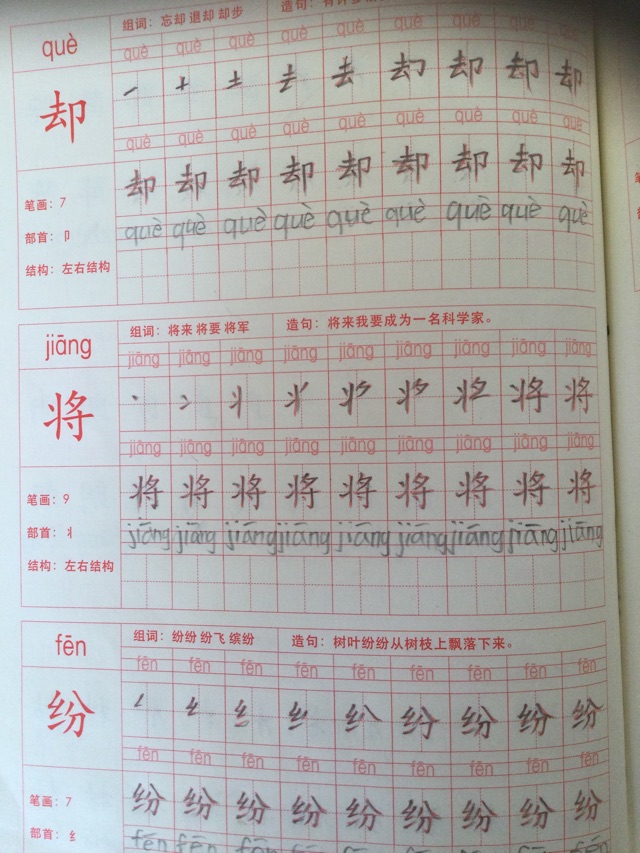 què 组词：忘却 退却 却步 造句：有许多
què què què què què què què què què
却 一 十 土 去 去 却 却 却 却
què què què què què què què què què
却 却 却 却 却 却 却 却 却
笔画：7
què què què què què què què què què
部首：卩
结构：左右结构
jiāng 组词：将来 将要 将军 造句：将来我要成为一名科学家。
jiāng jiāng jiāng jiāng jiāng jiāng jiāng jiāng jiāng
将 将 将
jiāng jiāng jiāng jiāng jiāng jiāng jiāng jiāng jiāng
将 将 将 将 将 将 将 将 将
笔画：9
部首：丬
jiāng jiāng jiāng jiāng jiāng jiāng jiāng jiāng jiāng
结构：左右结构
fēn 组词：纷纷 纷飞 缤纷 造句：树叶纷纷从树枝上飘落下来。
fēn fēn fēn fēn fēn fēn fēn fēn fēn
纷 纷 纷 纷 纷
fēn fēn fēn fēn fēn fēn fēn fēn fēn
纷 纷 纷 纷 纷 纷 纷 纷 纷
笔画：7
部首：纟
fēn fēn fēn